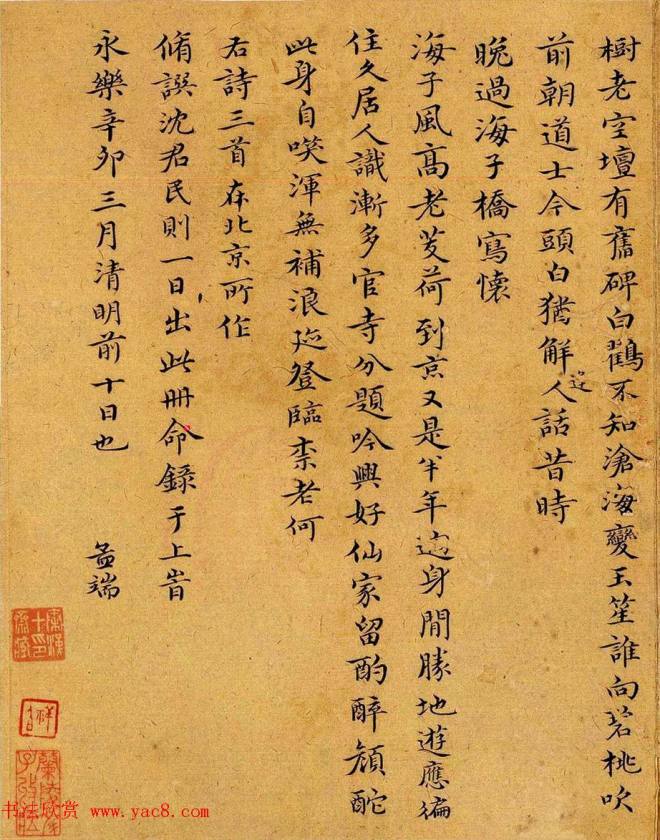 樹老空壇有舊碑白鶴不知滄海變玉笙誰向碧桃吹
前朝道士今頭白猶解逢人話昔時
晚過海子橋寫懷
海子風高老芰荷到京又是半年過身閒勝地遊應徧
住久居人識漸多官寺分題吟興好仙家留酌醉顏酡
此身自笑渾無補浪跡登臨柰老何
右詩三首在北京所作
脩譔沈君民則一日出此冊命錄于上時
永樂辛卯三月清明前十日也
孟端
书法欣赏 www.yac8.com